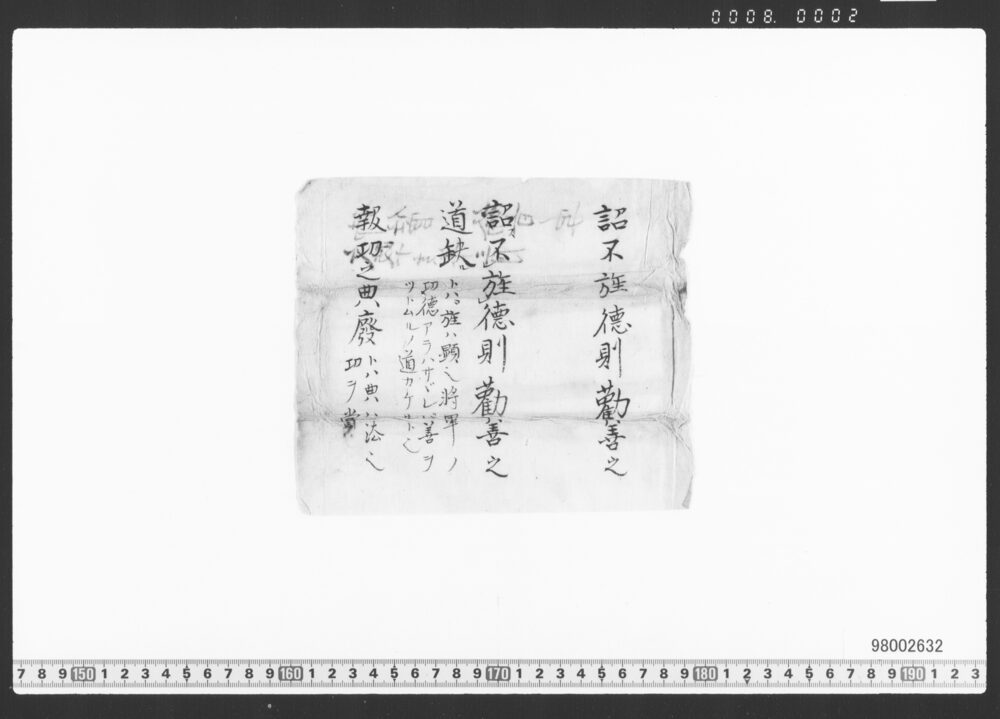 0008. 0002
詔不旌德則勸善之
詔不旌德則勸善之
道缺トハ旌ハ顕也將軍ノ
功德アラハサヾレバ善ヲ
ツトムルノ道カケルト也
報功之典廢トハ典ハ法也
功ヲ賞
98002632
7 8 9 150 1 2 3 4 5 6 7 8 9 160 1 2 3 4 5 6 7 8 9 170 1 2 3 4 5 6 7 8 9 180 1 2 3 4 5 6 7 8 9 190 1 2 3